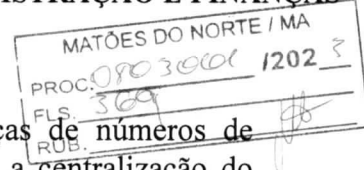 ISTRAÇÃO E FINANÇAS
MATÕES DO NORTE / MA
PROC. 0803001 /2023
FLS. 369
RUB.
ças de números de
a centralização do